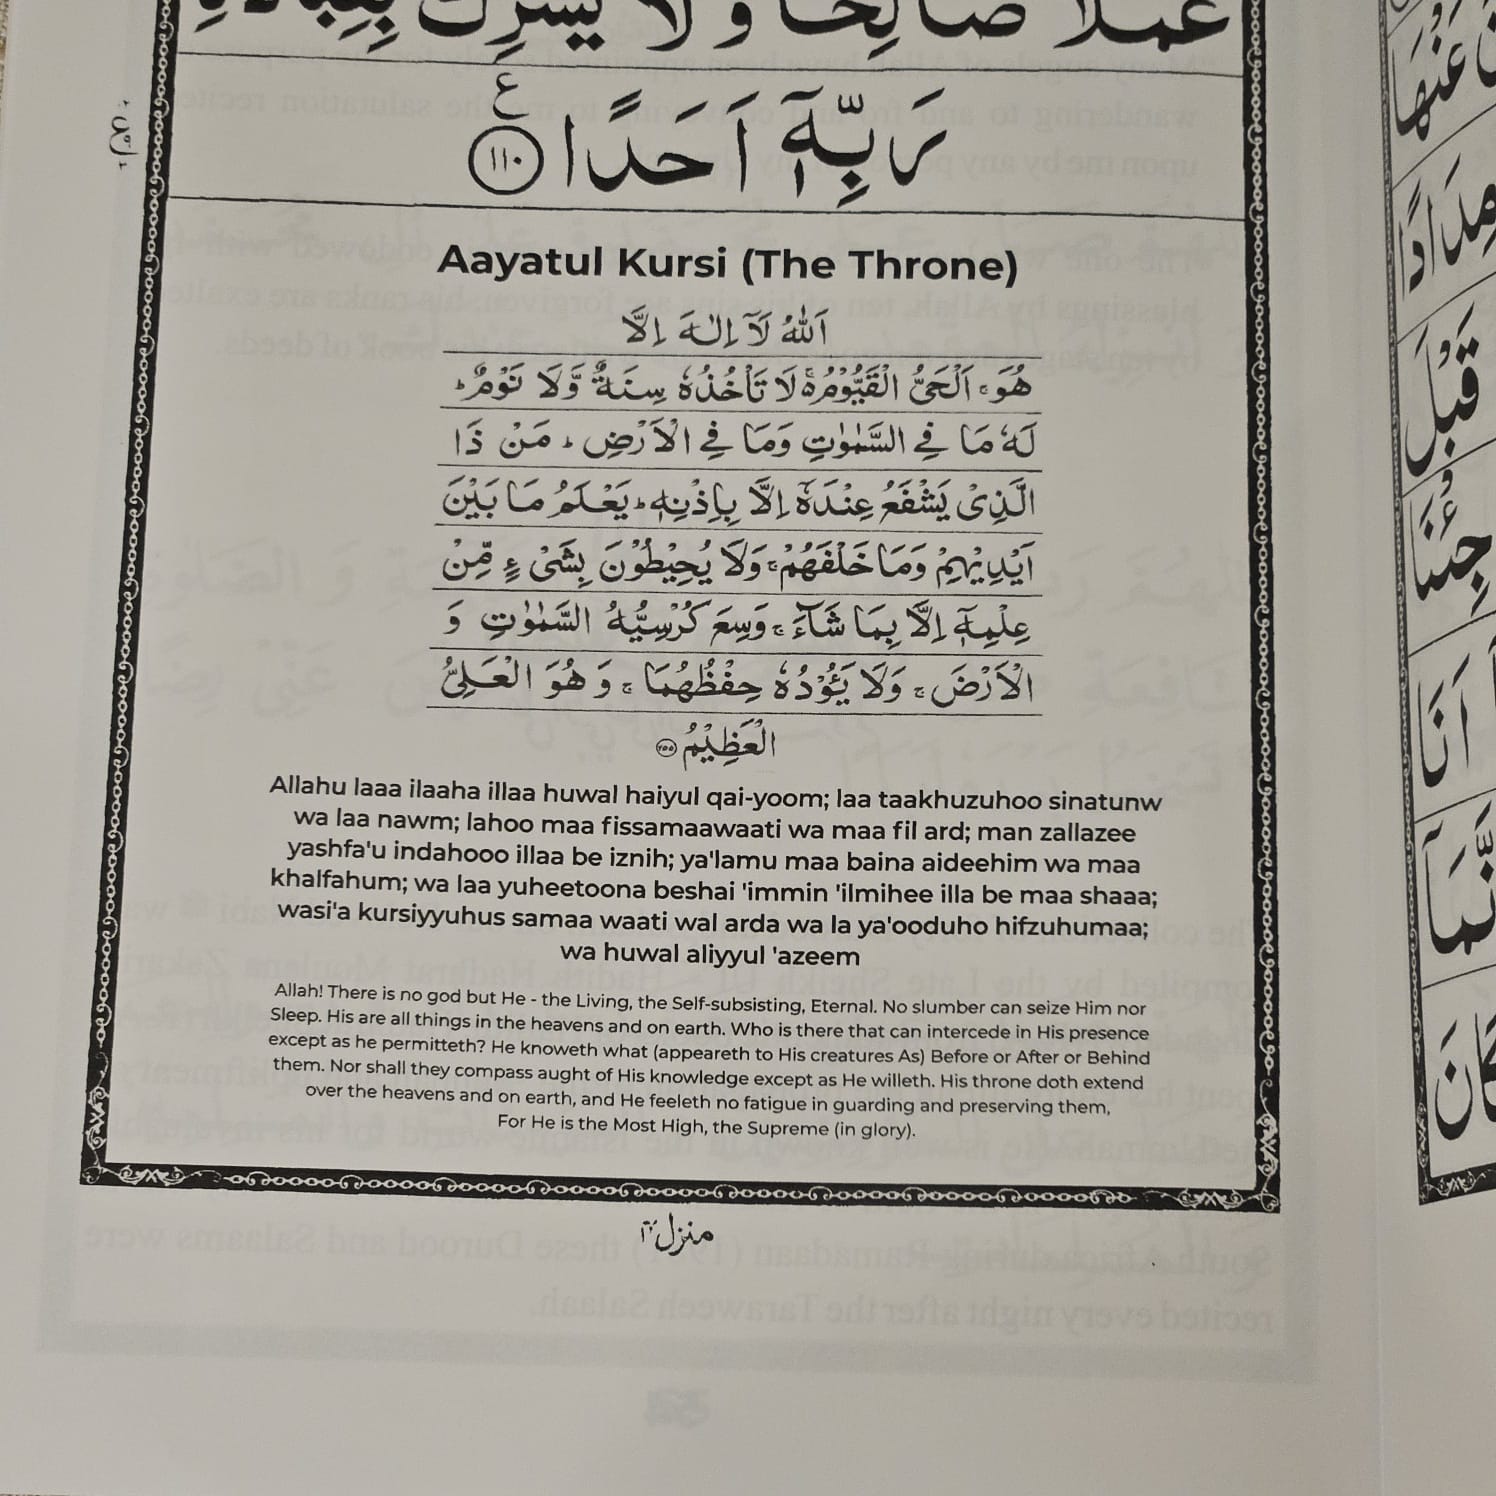 عَمَلًا صَالِحًا وَّلَا يُشْرِكْ بِعِبَادَةِ
رَبِّهٖٓ اَحَدًا ﴿١١٠﴾ ع
Aayatul Kursi (The Throne)
اَللّٰهُ لَآ اِلٰهَ اِلَّا
هُوَ ۚ اَلْحَيُّ الْقَيُّوْمُ ۚ۬ لَا تَاْخُذُهٗ سِنَةٌ وَّلَا نَوْمٌ ؕ
لَهٗ مَا فِي السَّمٰوٰتِ وَمَا فِي الْاَرْضِ ؕ مَنْ ذَا
الَّذِيْ يَشْفَعُ عِنْدَهٗٓ اِلَّا بِاِذْنِهٖ ؕ يَعْلَمُ مَا بَيْنَ
اَيْدِيْهِمْ وَمَا خَلْفَهُمْ ۚ وَلَا يُحِيْطُوْنَ بِشَيْءٍ مِّنْ
عِلْمِهٖٓ اِلَّا بِمَا شَآءَ ۚ وَسِعَ كُرْسِيُّهُ السَّمٰوٰتِ وَ
الْاَرْضَ ۚ وَلَا يَـُٔوْدُهٗ حِفْظُهُمَا ۚ وَ هُوَ الْعَلِيُّ
الْعَظِيْمُ ﴿٢٥٥﴾
Allahu laaa ilaaha illaa huwal haiyul qai-yoom; laa taakhuzuhoo sinatunw
wa laa nawm; lahoo maa fissamaawaati wa maa fil ard; man zallazee
yashfa'u indahooo illaa be iznih; ya'lamu maa baina aideehim wa maa
khalfahum; wa laa yuheetoona beshai 'immin 'ilmihee illa be maa shaaa;
wasi'a kursiyyuhus samaa waati wal arda wa la ya'ooduho hifzuhumaa;
wa huwal aliyyul 'azeem
Allah! There is no god but He - the Living, the Self-subsisting, Eternal. No slumber can seize Him nor
Sleep. His are all things in the heavens and on earth. Who is there that can intercede in His presence
except as he permitteth? He knoweth what (appeareth to His creatures As) Before or After or Behind
them. Nor shall they compass aught of His knowledge except as He willeth. His throne doth extend
over the heavens and on earth, and He feeleth no fatigue in guarding and preserving them,
For He is the Most High, the Supreme (in glory).
منزل ٤
عَنْهَا
مِدَادًا
قَبْلَ
جِئْنَا
اَنَا
كَانَ